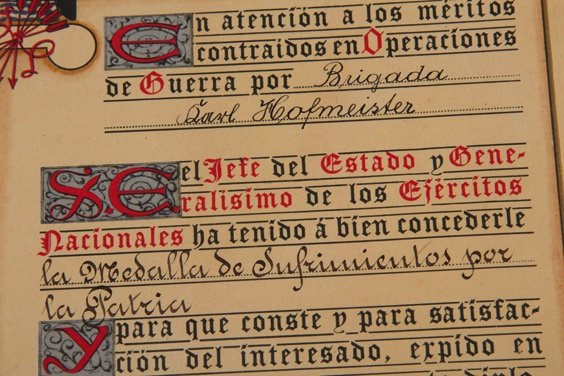 En atención a los méritos
contraidos en Operaciones
de Guerra por Brigada
Karl Hofmeister
S.E. el Jefe del Estado y Gene-
ralisimo de los Ejércitos
Nacionales ha tenido á bien concederle
la Medalla de Sufrimientos por
la Patria
Y para que conste y para satisfac-
ción del interesado, expido en